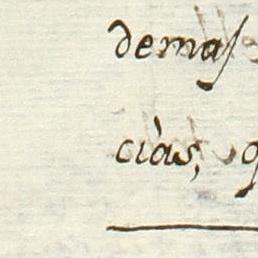 demas
ciàs,